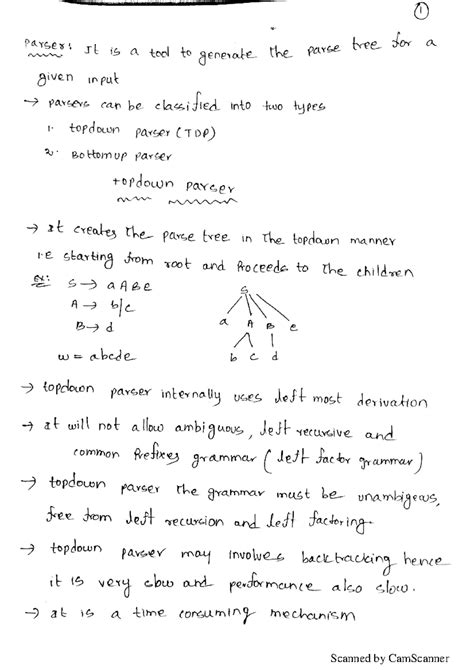 1
Parser: It is a tool to generate the parse tree for a
given input
→ parsers can be classified into two types
1. topdown parser (TDP)
2. Bottomup parser
topdown parser
→ It creates the parse tree in the topdown manner
i.e starting from root and Proceeds to the children
ex: S → aABe
A → b/c
B → d
w = abcde
S
a A B e
b c d
→ topdown parser internally uses left most derivation
→ it will not allow ambiguous, left recursive and
common Prefixes grammar (left factor grammar)
→ topdown parser the grammar must be unambigeous,
free from left recursion and left factoring.
→ topdown parser may involves backtracking hence
it is very slow and performance also slow.
→ it is a time consuming mechanism
Scanned by CamScanner